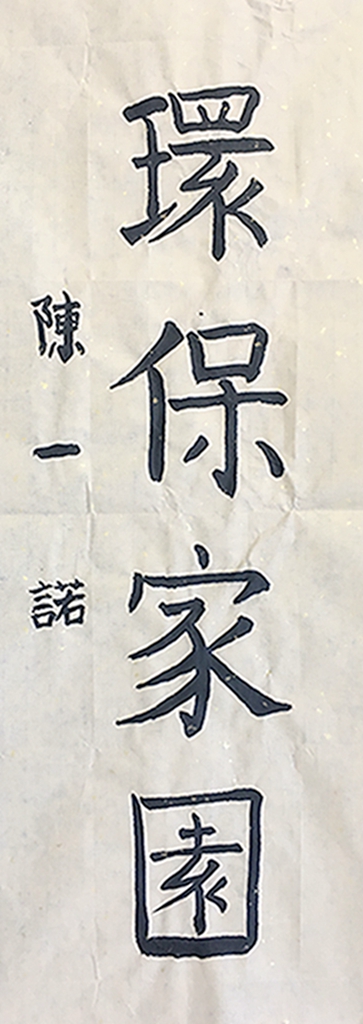 環保家園
陳一諾